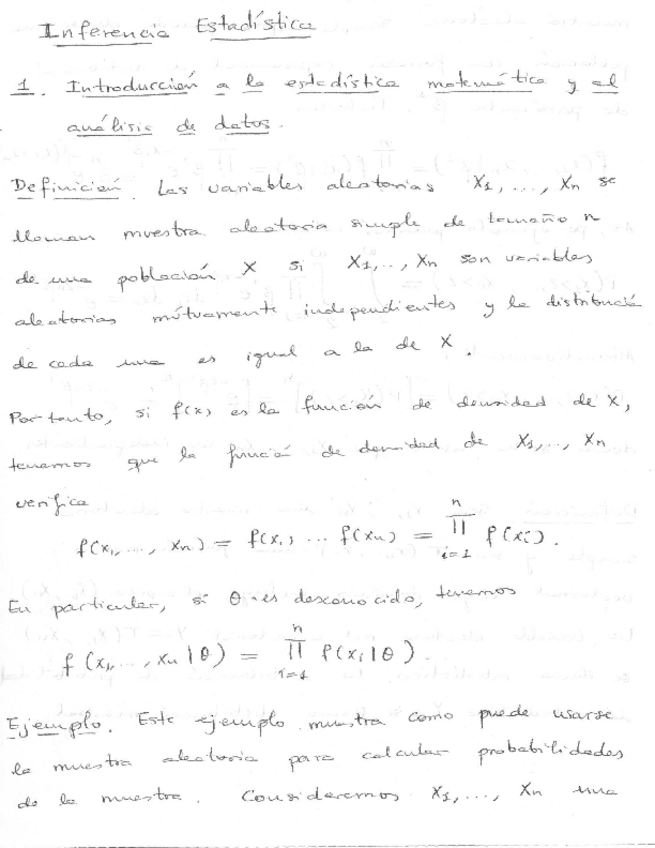 Inferencia Estadística
1. Introducción a la estadística matemática y al
análisis de datos.
Definición. Las variables aleatorias X1, ..., Xn se
llaman muestra aleatoria simple de tamaño n
de una población X si X1, .., Xn son variables
aleatorias mútuamente independientes y la distribució
de cada una es igual a la de X.
Por tanto, si f(x) es la función de densidad de X,
tenemos que la funció de densidad de X1, .., Xn
verifica
f(x1, ..., xn) = f(x1) ... f(xn) = ∏ⁿᵢ₌₁ f(xi).
En particular, si θ es desconocido, tenemos
f(x1, ..., xn | θ) = ∏ⁿᵢ₌₁ f(xi | θ).
Ejemplo. Este ejemplo muestra como puede usarse
la muestra aleatoria para calcular probabilidades
de la muestra. Consideremos X1, ..., Xn una